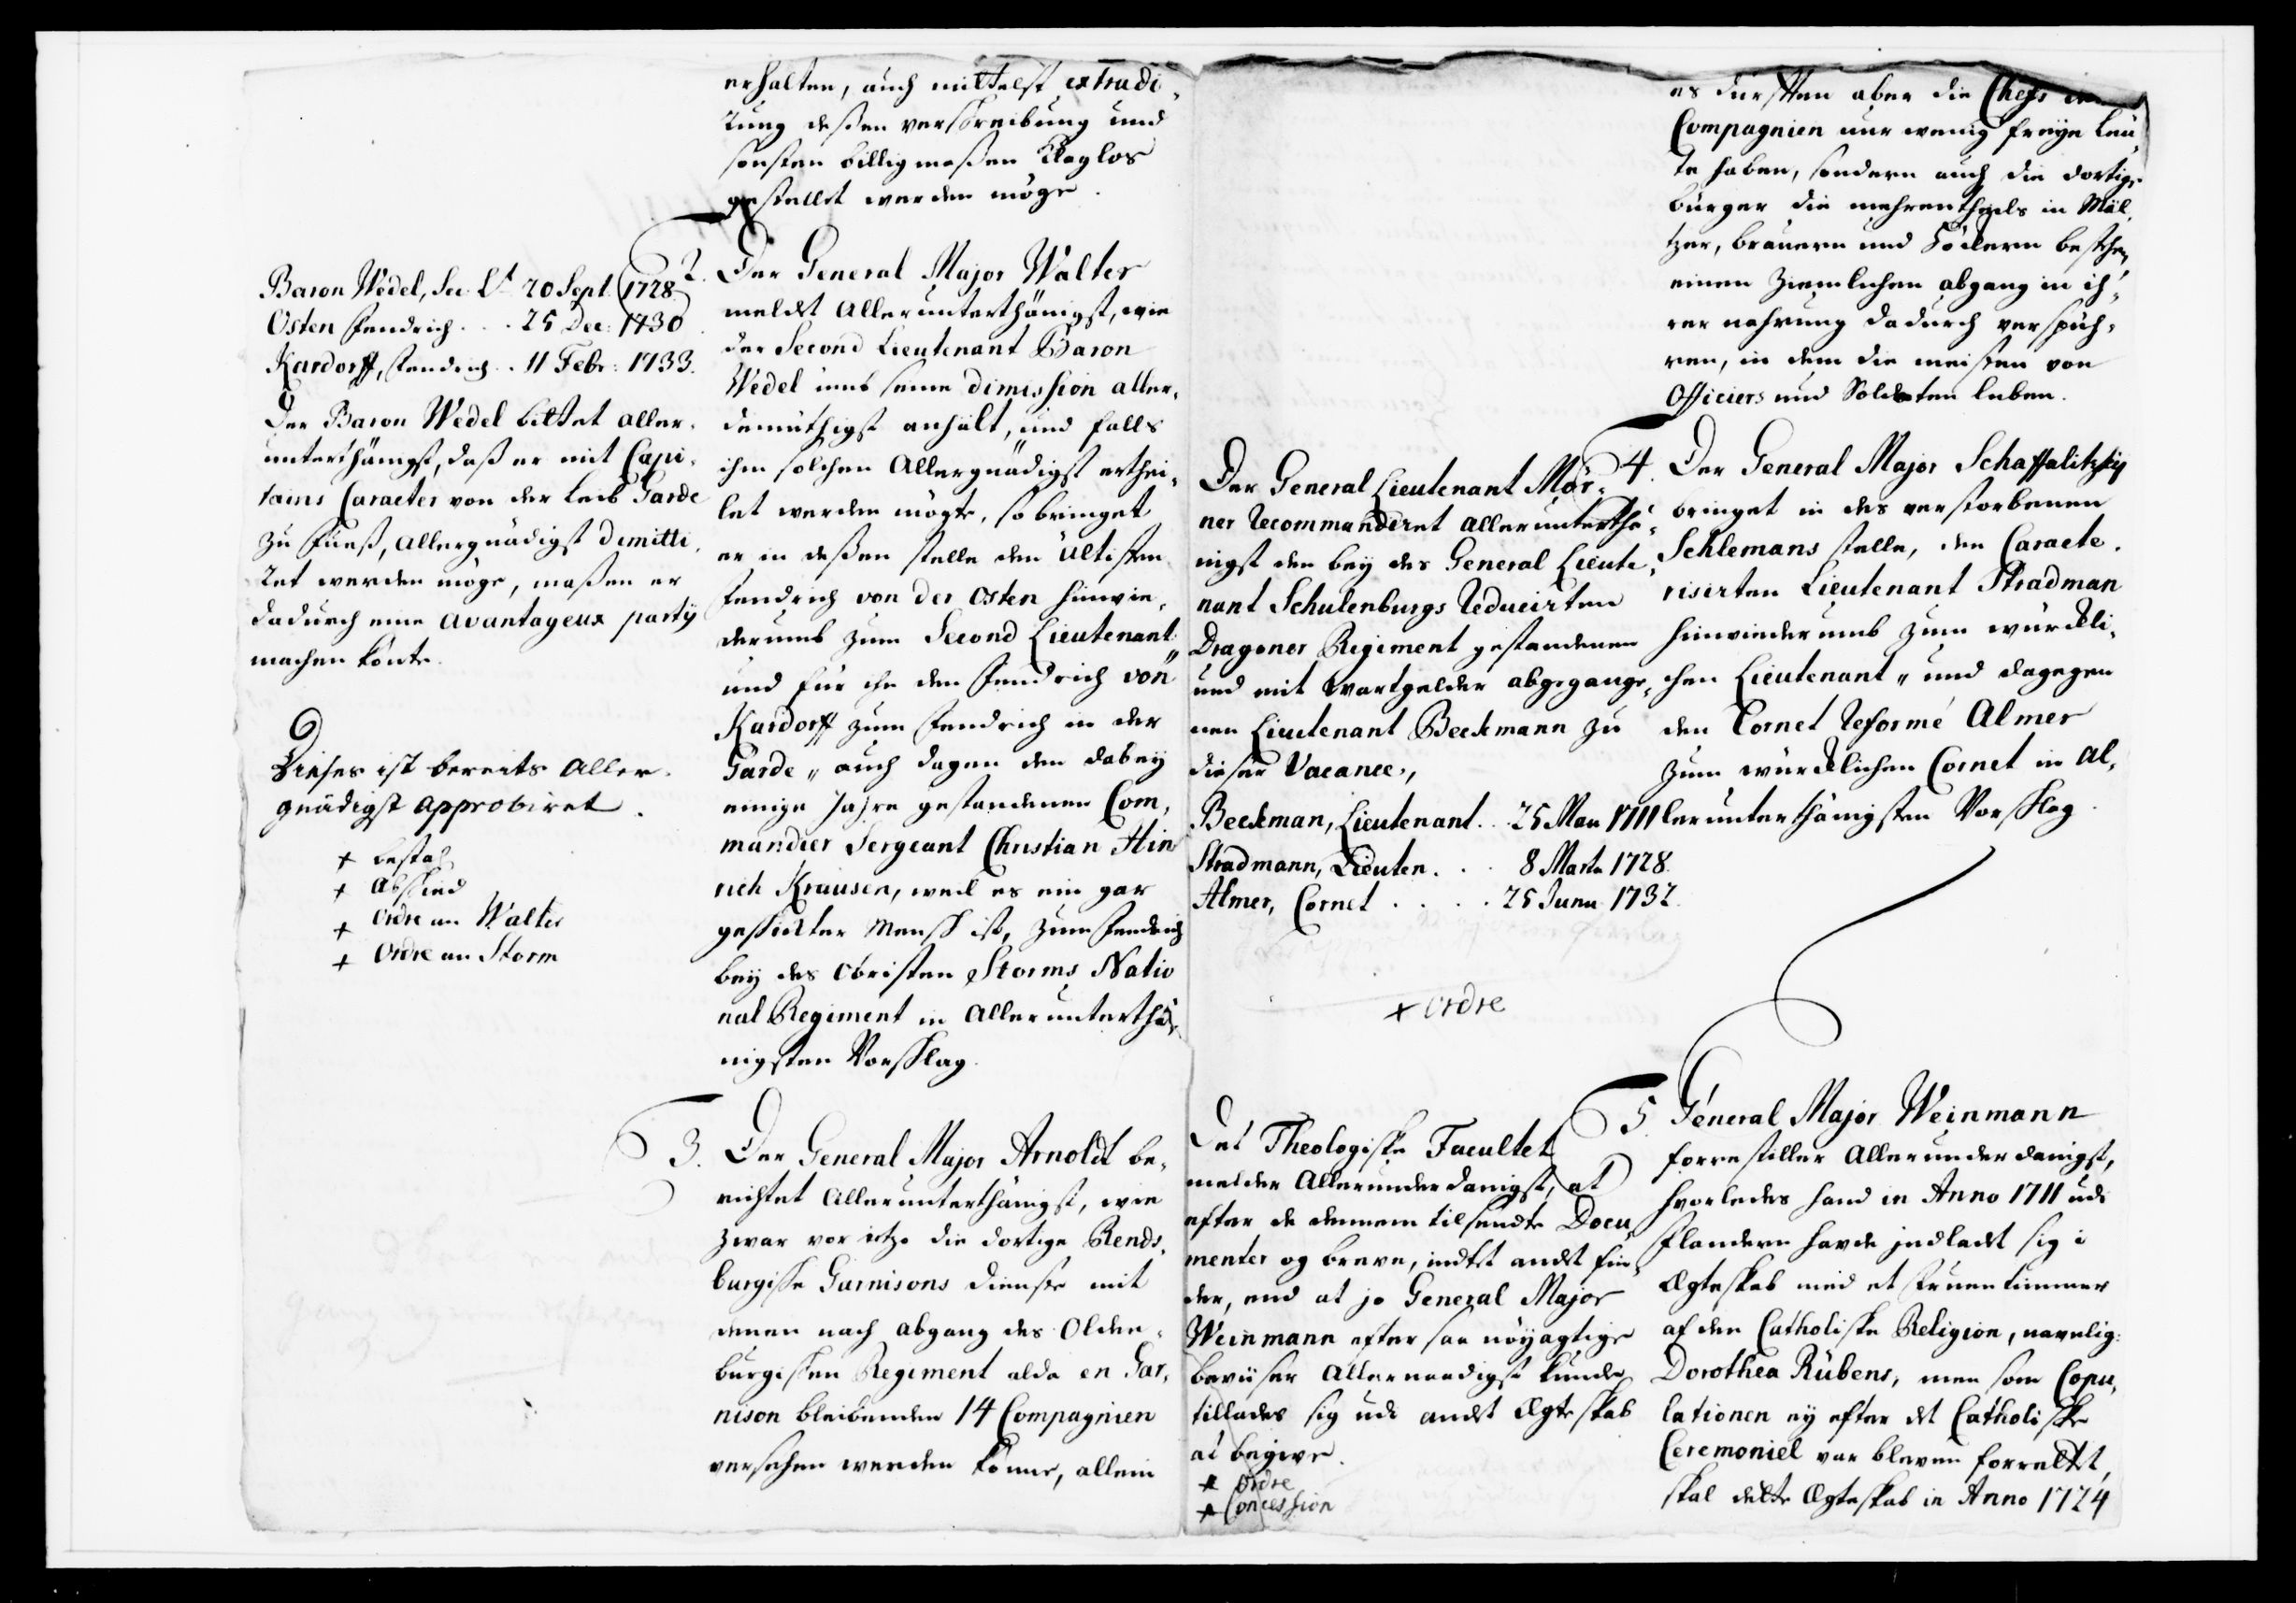 erhalten, auch mittelst extradi-
rung deßen verschreibung und
sonsten billigmaßen Klaglos
gestellet werden möge.
Baron Wedel, Sec. Lt. 20 Sept. 1728.
Osten Fendrich . . . 25 Dec: 1730.
Kardorff, Fendrich . . 11 Febr: 1733.
Der Baron Wedel bittet aller-
unterthänigst, daß er mit Capi-
tains Caracter von der Leib Garde
zu Fueß, allergnädigst dimitti-
ret werden möge, maßen er
dadurch eine avantageux partÿ
machen könte.
Dieses ist bereits Aller-
gnädigst approbiret.
+ bestal.
+ Abschied
+ Ordre an Walter
+ Ordre an Storm
2. Der General Major Walter
meldet Allerunterthänigst, wie
der Second Lieutenant Baron
Wedel umb seine dimission aller-
demüthigst anhält, und falls
ihm solchen Allergnädigst erthei-
let werden mögte, so bringet
er in deßen stelle den ältisten
Fendrich von der Osten hinwie-
derumb zum Second Lieutenant„
und für ihn den Fendrich von
Kardorff zum Fendrich in der
Garde„ auch dagen den dabeÿ
einige Jahre gestandenen Com-
mandier Sergeant Christian Hin
rich Krausen, weil es ein gar
geschickter Mensch ist, zum Fendrich
beÿ des Obristen Storms Natio
nal Regiment in Allerunterthä-
nigsten Vorschlag.
3. Der General Major Arnoldt be-
richtet Allerunterthänigst, wie
zwar vor itzo die dortige Rends-
burgische Garnisons dienste mit
denen nach abgang des Olden-
burgischen Regiment alda en Gar-
nison bleibenden 14 Compagnien
versehen werden könne, allein
es dürfften aber die Chefs
Compagnien nur wenig freÿe Leu-
te haben, sondern auch die dortige
bürger die mehrentheils in Mäl-
tzer, brauern und Höckern bestehen,
einen ziemlichen abgang in ih-
rer nahrung dadurch verspüh-
ren, in dem die meisten von
Officiers und Soldaten leben.
Der General Lieutenant Mör-
ner Recommanderet allerunterthä-
nigst den beÿ des General Lieute-
nant Schulenburgs Reducirten
Dragoner Regiment gestandenen
und mit Wartgelder abgegange-
nen Lieutenant Beckmann zu
dieser Vacance,
Beckman, Lieutenant . . 25 Mau 1711
Stradmann, Lieuten . . . 8 Marta 1728.
Almer, Cornet . . . . 25 Junu 1732.
+ Ordre
4. Der General Major Schaffalitzkÿ
bringet in des verstorbenen
Schlemans stelle, den Caracte-
risirten Lieutenant Stradman
hinwiederumb zum würckli-
chen Lieutenant„ und dagegen
den Cornet Reformé Almer
zum würcklichen Cornet in al-
lerunterthänigsten Vorschlag.
Det Theologiske Facultet
melder Allerunderdanigst, at
efter de dennem tilsendte Docu
menter og breve, indtet andet fin-
der, end at jo General Major
Weinmann efter saa nöÿagtige
beviiser Allernaadigst kunde
tillades sig udi andet Ægteskab
at begive.
+ Ordre
+ Concession
5. General Major Weinmann
forrestiller Allerunderdanigst,
hvorledes hand in Anno 1711 udi
Flandern havde indladt sig i
Ægteskab med et Fruentimmer
af den Catholiske Religion, navnlig:
Dorothea Rübens, men som Copu-
lationen eÿ efter det Catholiske
Ceremoniel var bleven forrettet,
skal dette Ægteskab in Anno 1724